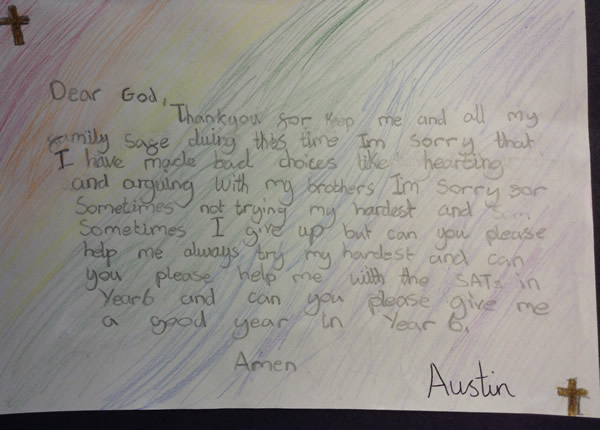 Dear God,
Thankyou for keep me and all my
family safe duing this time Im sorry that
I have made bad choices like hearting
and arguing with my brothers Im Sorry for
Sometimes not trying my hardest and
Sometimes I give up but can you please
help me always try my hardest and can
you please help me with the SATs in
Year6 and can you please give me
a good year in Year 6.
Amen
Austin